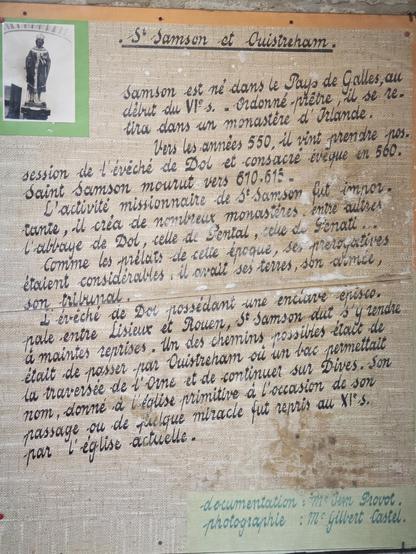 St Samson et Ouistreham.
Samson est né dans le Pays de Galles, au
début du VIe s. - Ordonné prêtre, il se re-
tira dans un monastère d'Irlande.
Vers les années 550, il vint prendre pos-
session de l'évêché de Dol et consacré évêque en 560.
Saint Samson mourut vers 610-615.
L'activité missionnaire de St Samson fut impor-
tante, il créa de nombreux monastères, entre autres
l'abbaye de Dol, celle de Pental, celle de
Comme les prélats de cette époque, ses prérogatives
étaient considérables : il avait ses terres, son armée,
son tribunal.
L'évêché de Dol possédant une enclave épisco-
pale entre Lisieux et Rouen, St Samson dut s'y rendre
à maintes reprises. Un des chemins possibles était de
était de passer par Ouistreham où un bac permettait
la traversée de l'Orne et de continuer sur Dives. Son
nom, donné à l'église primitive à l'occasion de son
passage ou de quelque miracle fut repris au XIe s.
par l'église actuelle.
documentation : Provot.
photographie : Mr Gilbert Castel.